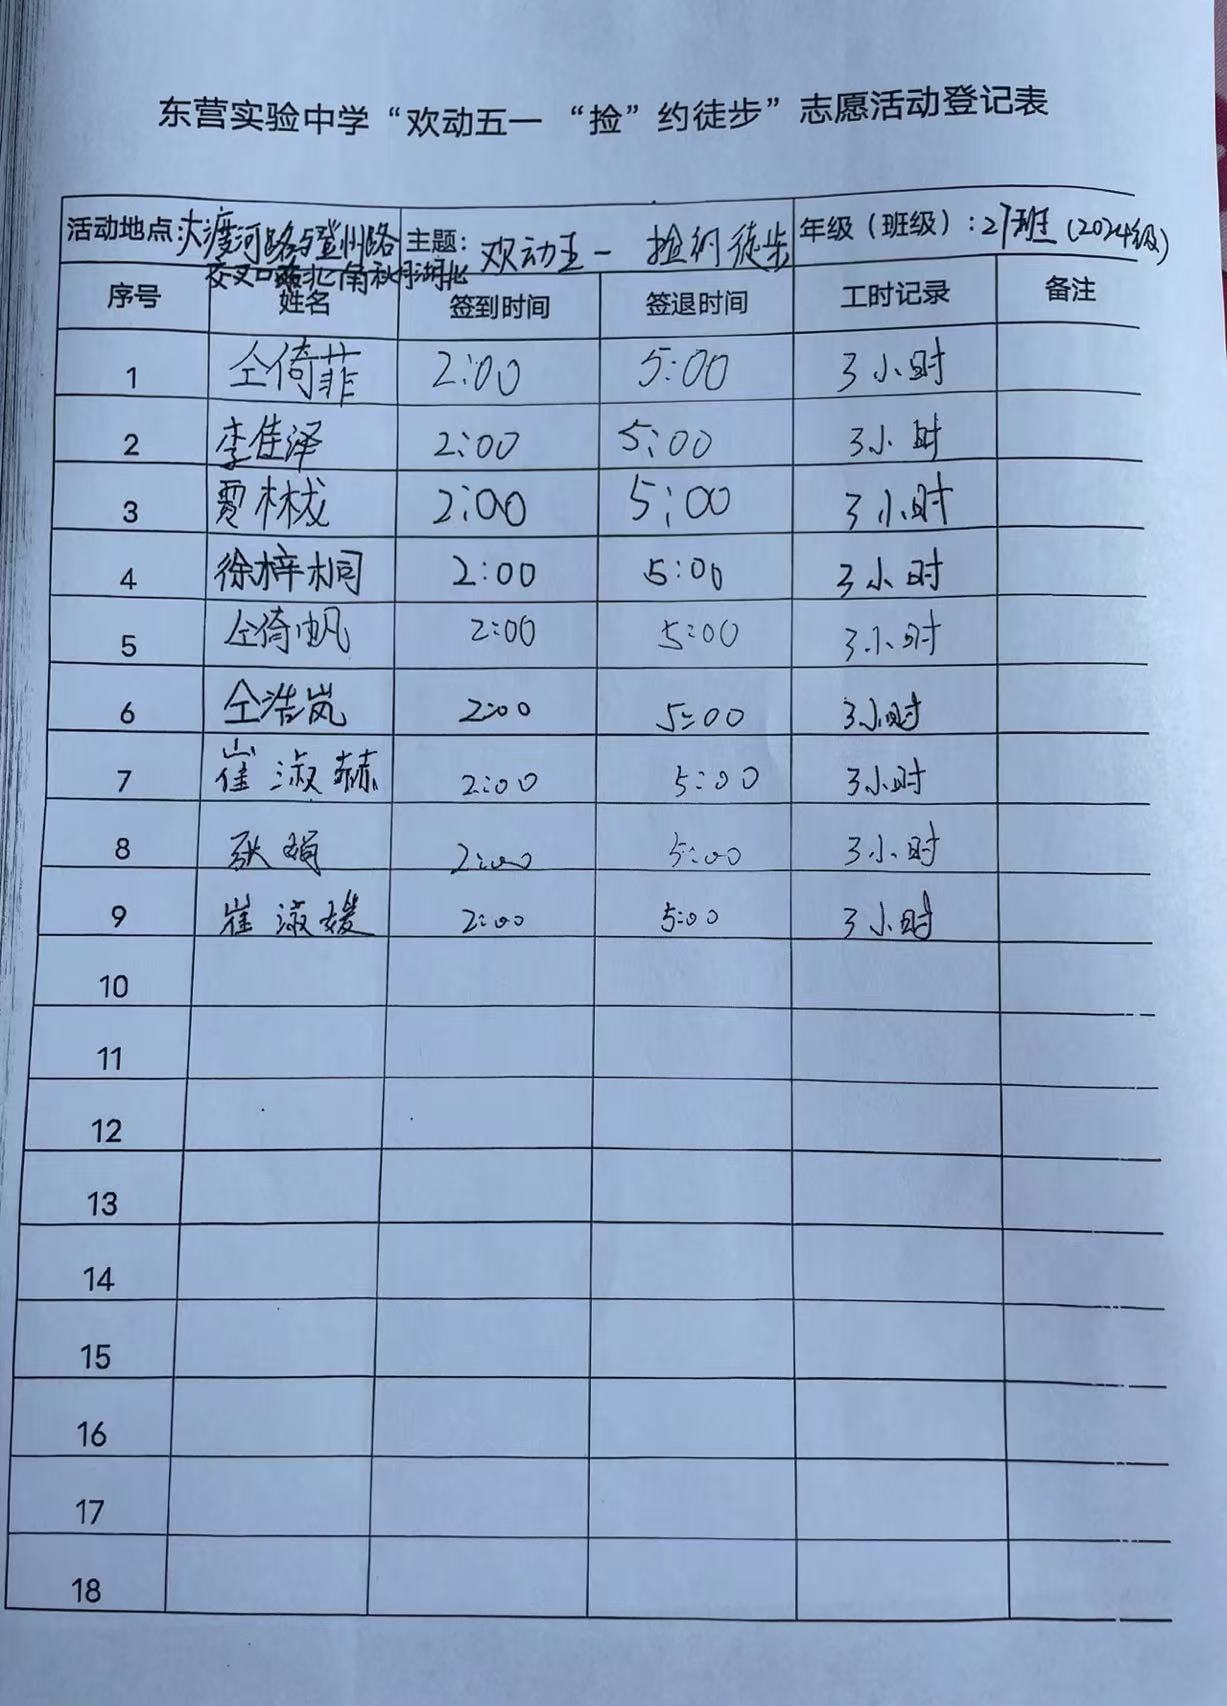 东营实验中学“欢动五一 “捡”约徒步”志愿活动登记表
活动地点:大渡河路与登州路交叉口路北,南秋月湖北 主题:欢动五一 捡约徒步 年级(班级):27班(2024级)
序号 姓名 签到时间 签退时间 工时记录 备注
1 仝倚菲 2:00 5:00 3小时
2 李佳泽 2:00 5:00 3小时
3 贾林栊 2:00 5:00 3小时
4 徐梓桐 2:00 5:00 3小时
5 仝倚帆 2:00 5:00 3小时
6 仝浩岚 2:00 5:00 3小时
7 崔淑赫 2:00 5:00 3小时
8 张娟 2:00 5:00 3小时
9 崔淑媛 2:00 5:00 3小时
10
11
12
13
14
15
16
17
18